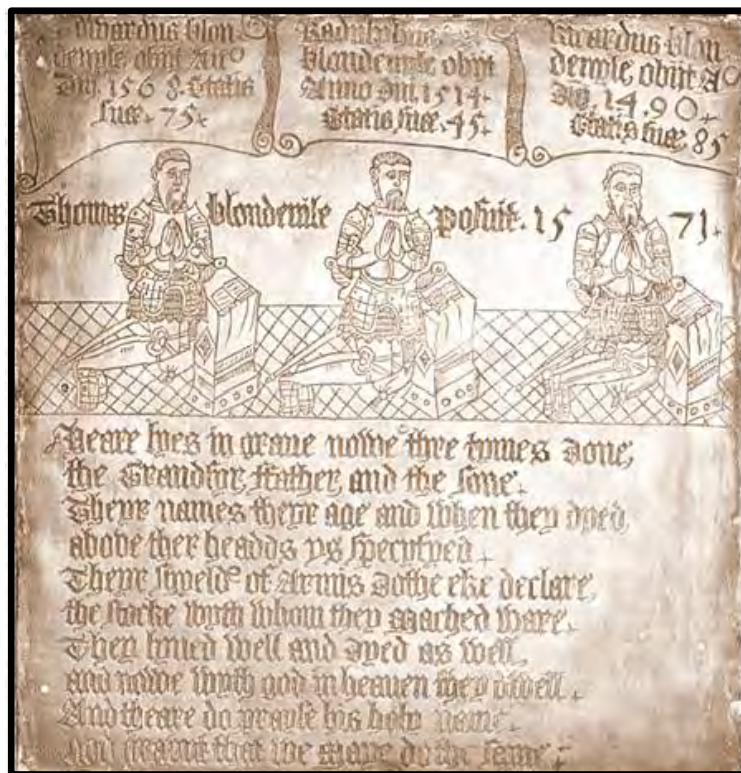 dwardus blon
devyle obiit An°
Dm. 1568. Etatis
sue. 75.
Radulphus
blondevyle obiit
Anno Dm. 1514.
Etatis sue. 45.
Ricardus blon
devyle obiit A°
Dm. 1490.
Etatis sue. 85
Thomas blondevile posuit. 1571.
Heare lyes in grave nowe thre tymes done,
the Grandsyr, ffather, and the sone.
Theyr names theyr age and when they dyed,
above ther headds ys specyfyed.
Theyr shyeld of Armes dothe eke declare,
the stocke wyth whom they mached ware.
They lyued well and dyed as well,
and nowe wyth god in heaven they dwell.
And theare do prayse his holy name.
god graunt that we maye do the same.